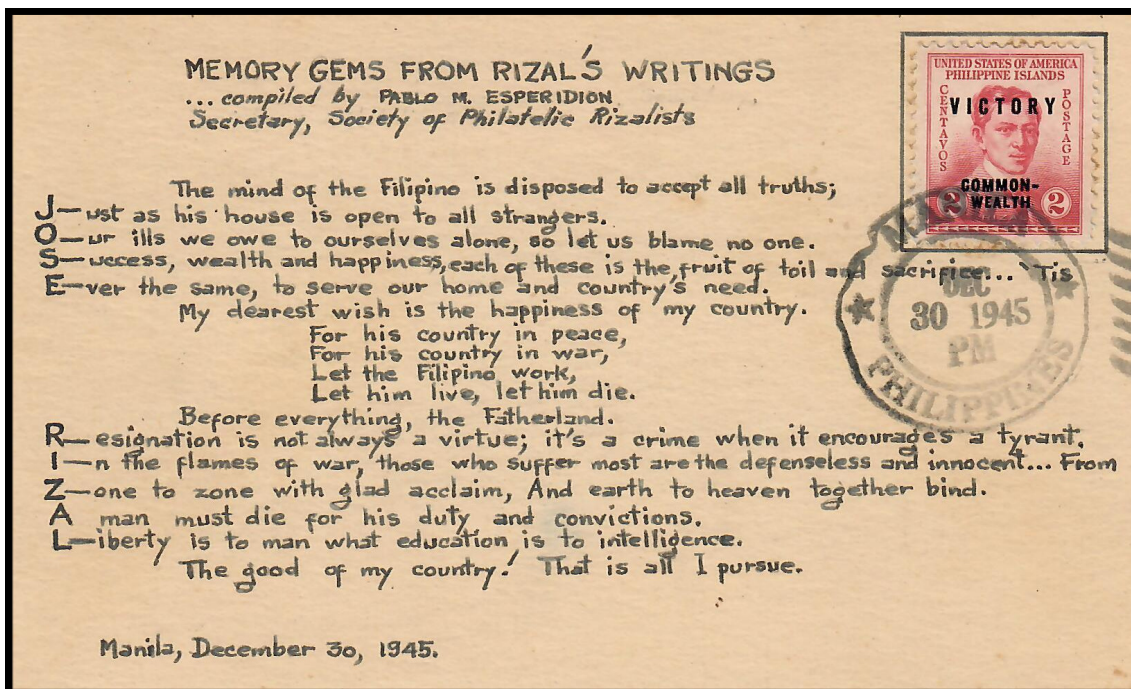 MEMORY GEMS FROM RIZAL'S WRITINGS
...compiled by PABLO M. ESPERIDION
Secretary, Society of Philatelic Rizalists
UNITED STATES OF AMERICA
PHILIPPINE ISLANDS
CENTAVOS
VICTORY
POSTAGE
COMMON-
WEALTH
2 2
The mind of the Filipino is disposed to accept all truths;
J—ust as his house is open to all strangers.
O—ur ills we owe to ourselves alone, so let us blame no one.
S—uccess, wealth and happiness, each of these is the fruit of toil and sacrifice... 'Tis
E—ver the same, to serve our home and country's need.
My dearest wish is the happiness of my country.
For his country in peace,
For his country in war,
Let the Filipino work,
Let him live, let him die.
Before everything, the Fatherland.
R—esignation is not always a virtue; it's a crime when it encourages a tyrant.
I—n the flames of war, those who suffer most are the defenseless and innocent... From
Z—one to zone with glad acclaim, And earth to heaven together bind.
A man must die for his duty and convictions.
L—iberty is to man what education is to intelligence.
The good of my country! That is all I pursue.
MANILA
DEC
30 1945
PM
PHILIPPINES
Manila, December 30, 1945.